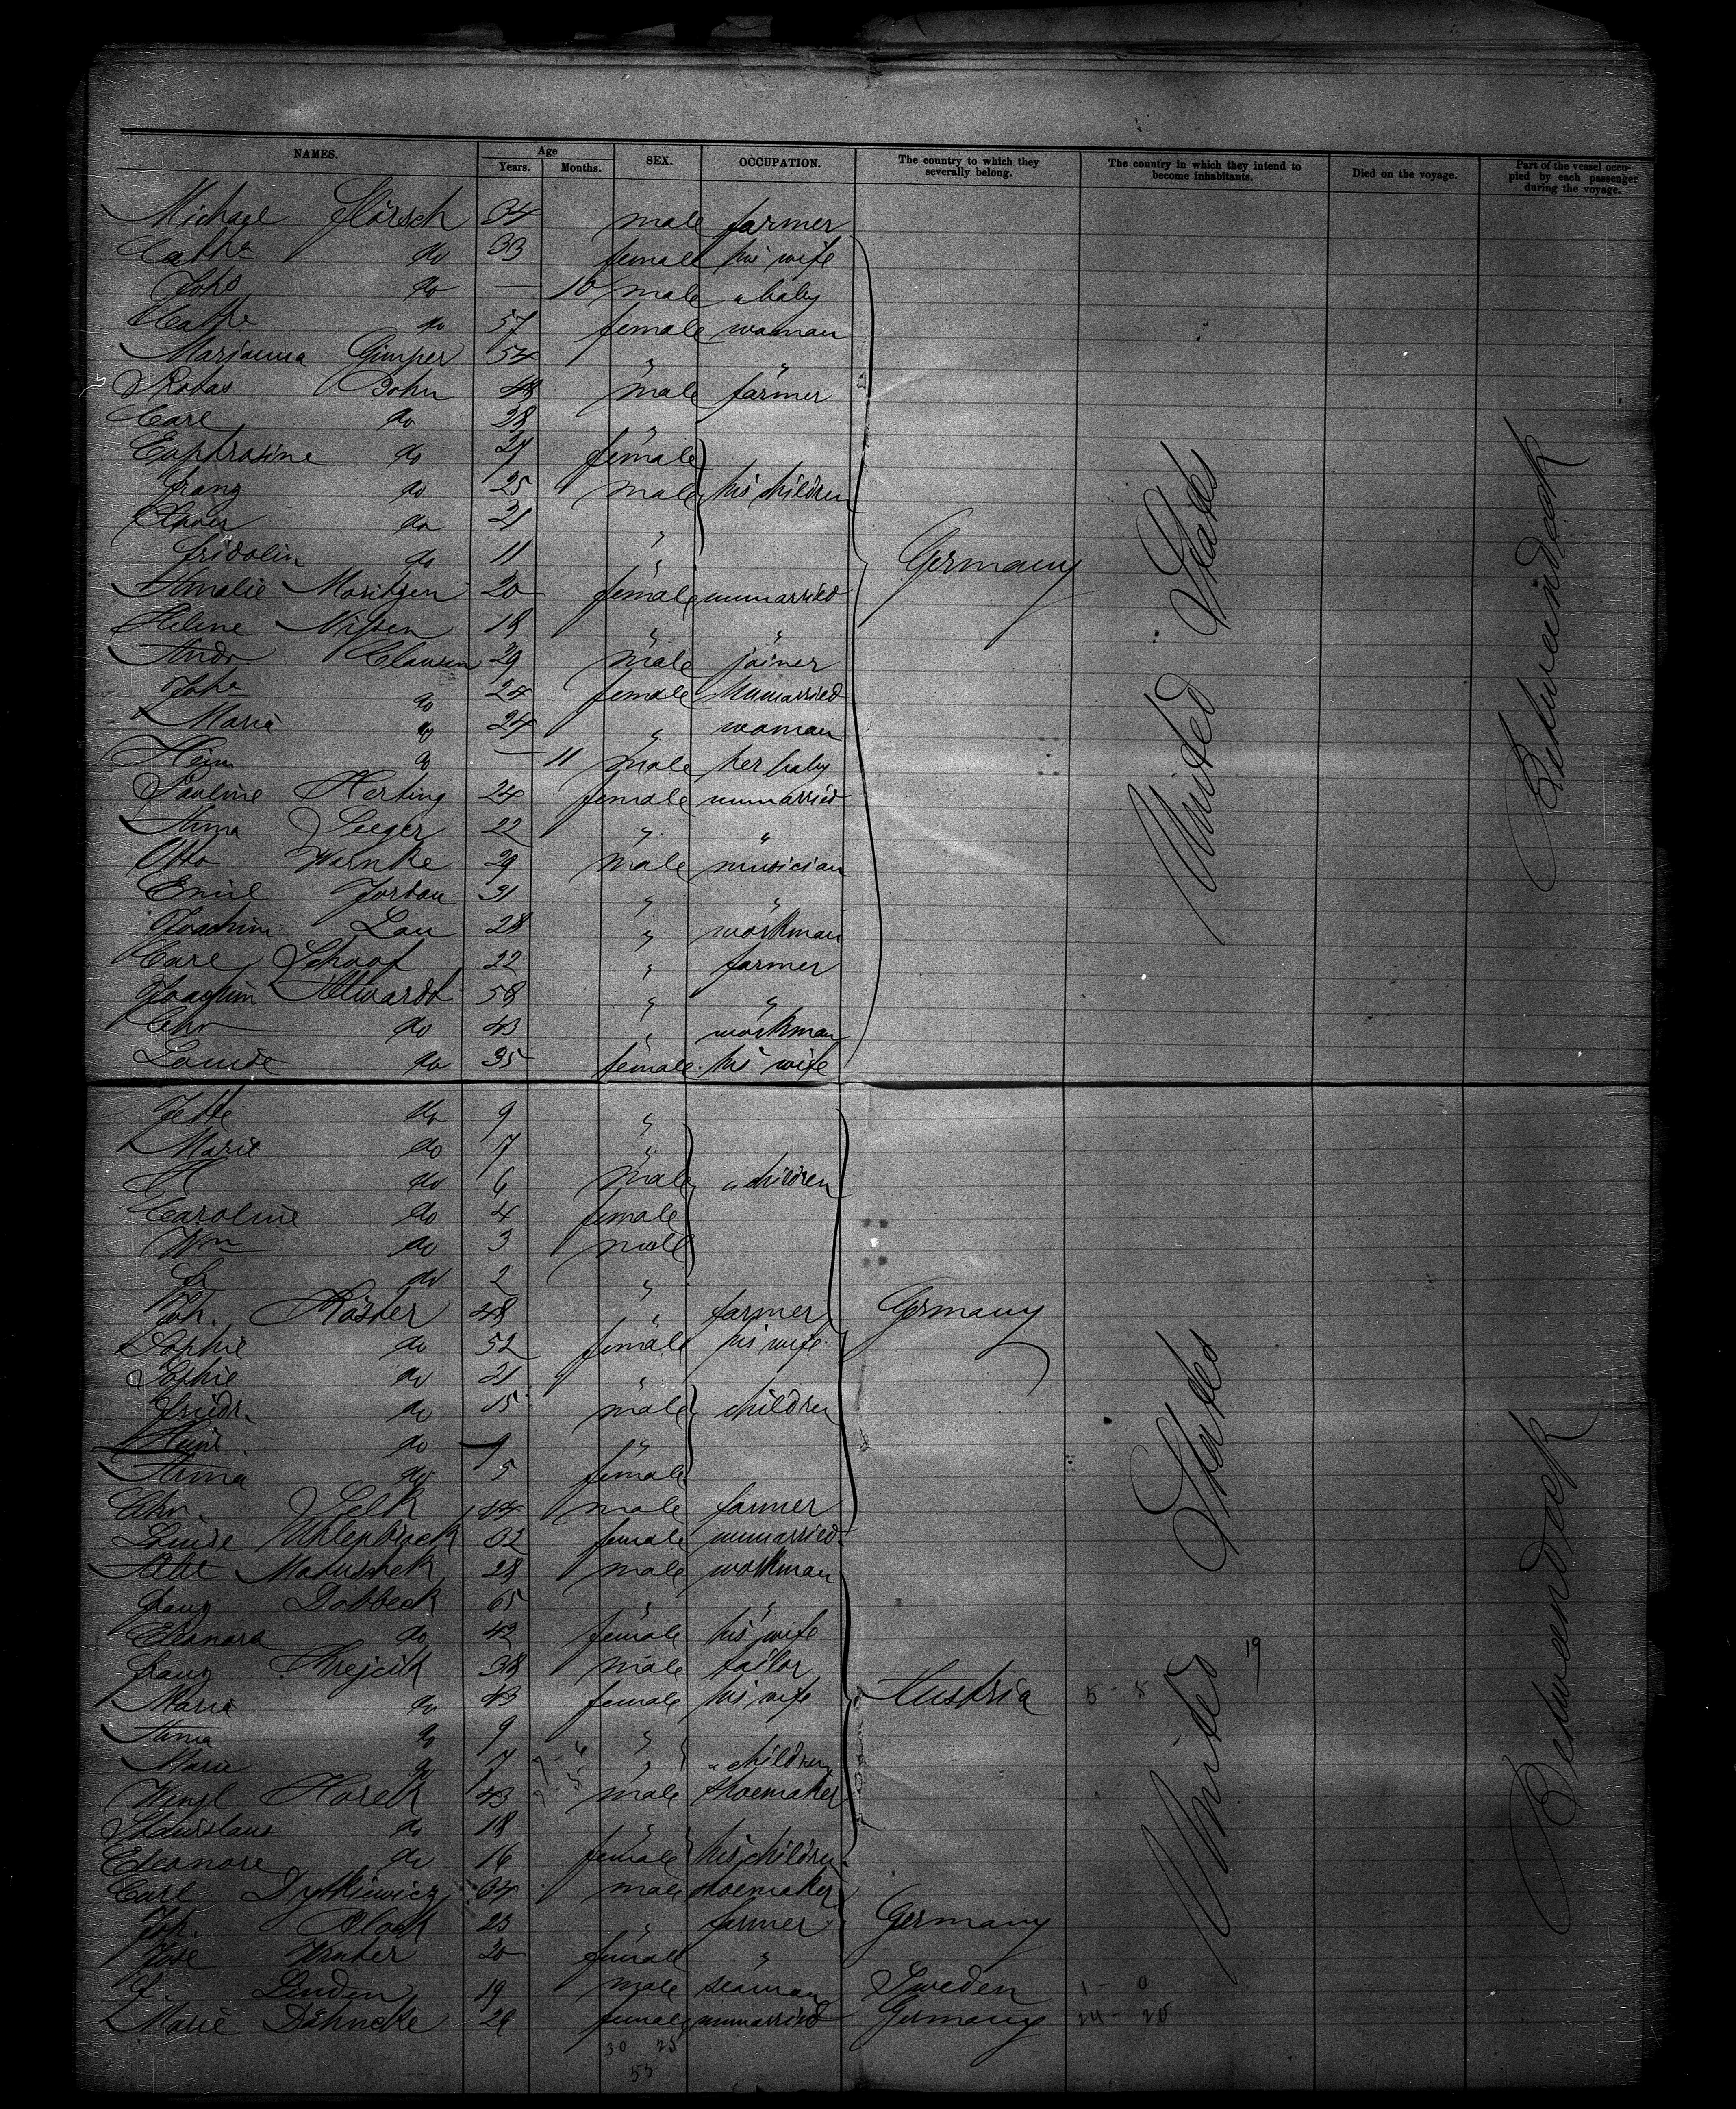 NAMES. Age Years. Months. SEX. OCCUPATION. The country to which they severally belong. The country in which they intend to become inhabitants. Died on the voyage. Part of the vessel occupied by each passenger during the voyage.
Michael Flörsch 34 male farmer
Cathe do 33 female his wife
Johs do — 10 male " baby
Cathe do 57 female woman
Marianna Gimper 54 " "
John 48 male farmer
Carl do 28 "
Euphrasine do 27 female
Franz do 25 male his children
Xaver do 21 "
Fridolin do 11 "
Germany
Amalie 20 female unmarried
Helene Nissen 18 " "
Andr. Clausen 29 male joiner
Joha do 24 female unmarried
Maria do 24 " woman
Heinr do — 11 male her baby
Pauline Herting 24 female unmarried
Anna Seeger 22 " "
Otto Warnke 29 male musician
Emil Jordan 31 " "
Joachim Lau 28 " workman
Carl Schoof 22 " farmer
Joachim Ahwardt 58 " "
Chr do 43 " workman
Louise do 35 female his wife
United States
Betweendeck
Jette do 9 "
Marie do 7 "
do 6 male " children
Caroline do 4 female
Wm do 3 male
Fr do 2 "
Joh. Köster 48 " farmer Germany
Sophie do 52 female his wife
Sophie do 21 "
Friedr. do 15 male children
Heinr. do 9 "
Anna do 5 female
Chr. Selk 44 male farmer
Louise Uhlenbrock 32 female unmarried
Albt Matuschek 28 male workman
Franz Dobbeck 65 " "
Eleonora do 42 female his wife
Franz Krejcik 38 male tailor
Maria do 43 female his wife Austria
Anna do 9 "
Marie do 7 " " children
Wenzl Horek 43 male shoemaker
Stanislaus do 18 "
Eleonore do 16 female his children
Carl Dytkiewicz 34 male shoemaker
Joh. Block 23 " farmer Germany
Jose Winter 20 female "
Linden 19 male seaman Sweden 1 - 0
Marie Dähncke 26 female unmarried Germany
30 25
55
United States
19
Betweendeck